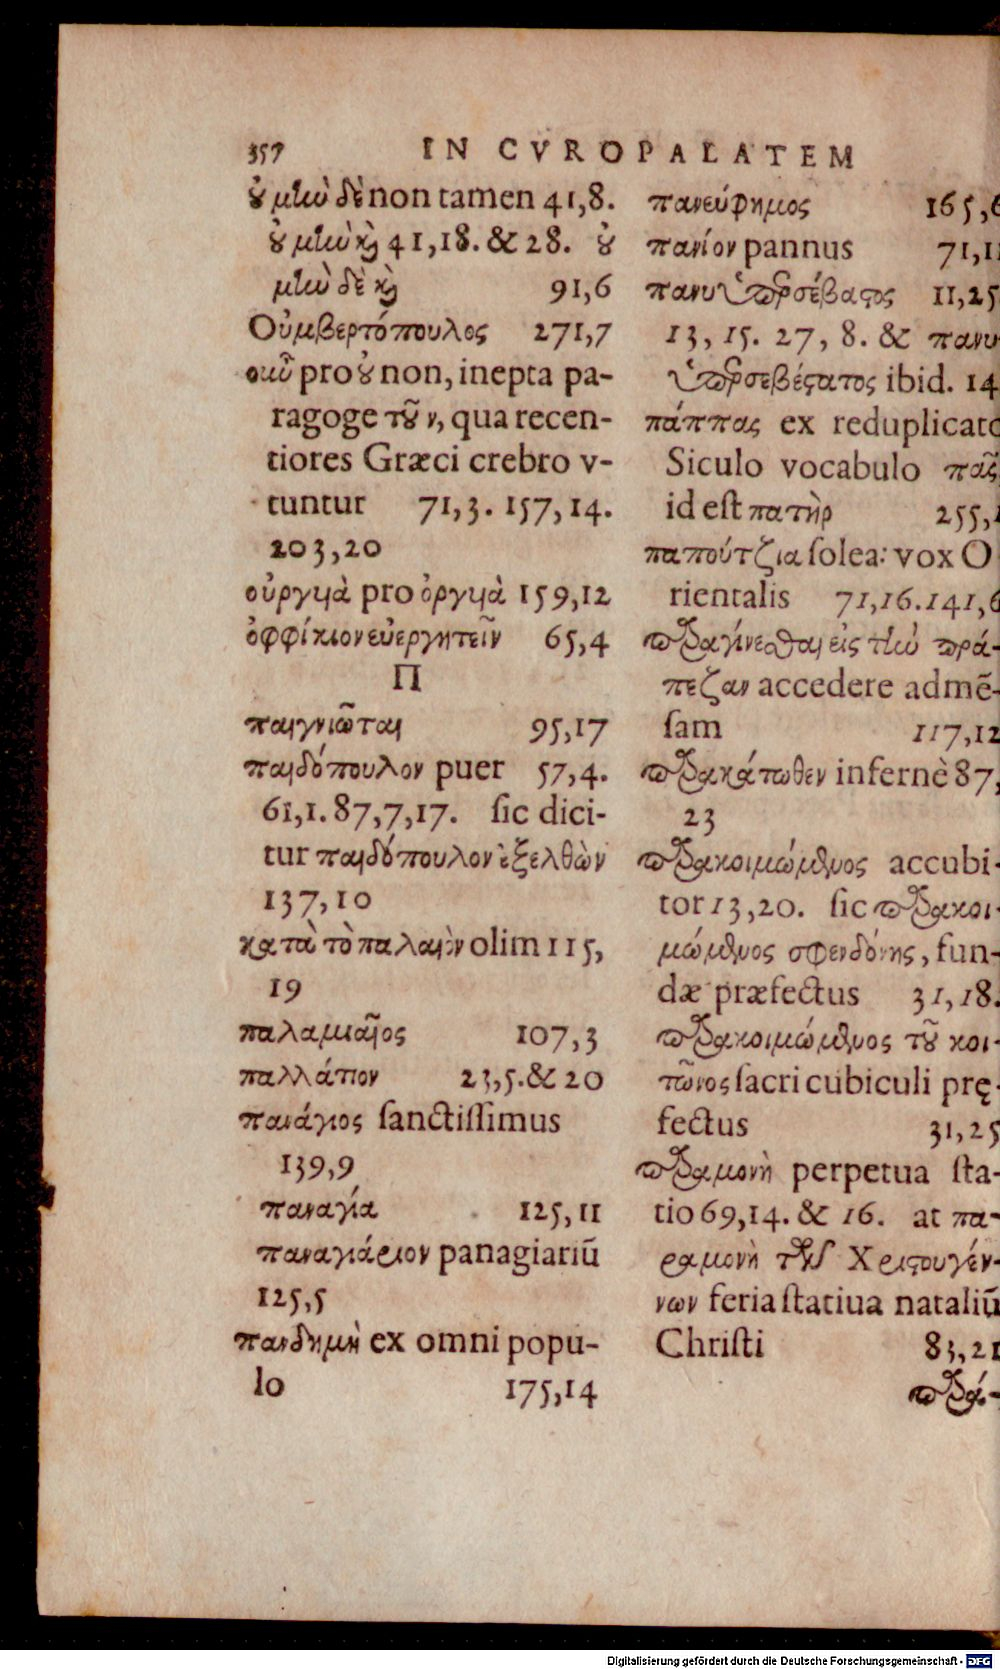 357 IN CVROPALATEM
οὐ μὴν δὲ non tamen 41,8.
οὐ μὴν καὶ 41,18. & 28. οὐ
μὴν δὲ καὶ 91,6
Οὐμβερτόπουλος 271,7
οὐκοῦν pro οὐ non, inepta pa-
ragoge τοῦ ν, qua recen-
tiores Græci crebro v-
tuntur 71,3. 157,14.
203,20
οὐργιὰ pro ὀργιὰ 159,12
ὀφφίκιον εὐεργητεῖν 65,4
Π
παιγνιῶται 95,17
παιδόπουλον puer 57,4.
61,1. 87,7,17. sic dici-
tur παιδόπουλον ἐξελθὼν
137,10
κατὰ τὸ παλαιὸν olim 115,
19
παλαμιαῖος 107,3
παλλάτιον 23,5. & 20
πανάγιος sanctissimus
139,9
παναγία 125,11
παναγιάριον panagiariū
125,5
πανδημὴ ex omni popu-
lo 175,14
πανεύφημος 165,6
πανίον pannus 71,11
πανυπερσέβαστος 11,25
13, 15. 27, 8. & πανυ-
περσεβέστατος ibid. 14
πάππας ex reduplicato
Siculo vocabulo πᾶς,
id est πατὴρ 255,
παπούτζια solea: vox O
rientalis 71,16. 141,6
παραγίνεσθαι εἰς τὴν τρά-
πεζαν accedere ad mē-
sam 117,12
παρακάτωθεν infernè 87,
23
παρακοιμώμενος accubi-
tor 13,20. sic παρακοι-
μώμενος σφενδόνης, fun-
dæ præfectus 31,18.
παρακοιμώμενος τοῦ κοι-
τῶνος sacri cubiculi prę-
fectus 31,25
παραμονὴ perpetua sta-
tio 69,14. & 16. at πα-
ραμονὴ τῶν Χριστουγέν-
νων feria statiua nataliū
Christi 83,21
παρά-
Digitalisierung gefördert durch die Deutsche Forschungsgemeinschaft - DFG